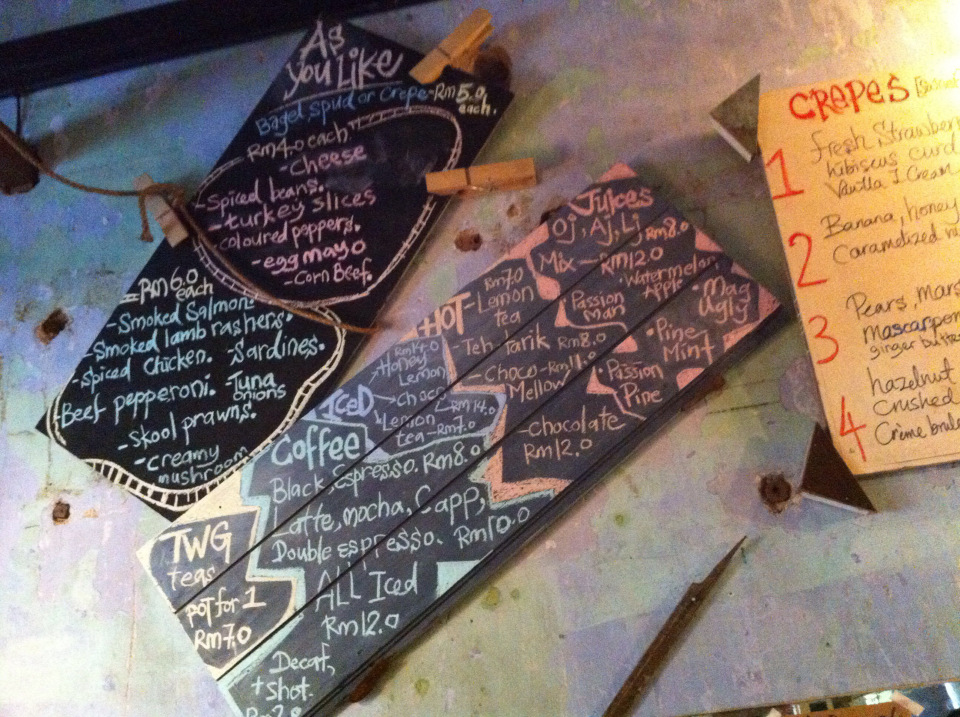 As
you Like
Bagel spud or crepe-Rm5.0
each.
Rm4.0 each
-cheese
-Spiced beans.
-turkey slices
-coloured peppers.
-egg mayo
-Corn Beef.
=Rm6.0
each
-Smoked Salmon.
-Smoked lamb rashers.
-Spiced chicken. -Sardines.
Beef pepperoni. -Tuna
onions
-skool prawns.
-creamy
mushroom
Juices
Oj, Aj, Lj
Rm8.0
Mix - Rm12.0
Watermelon
Apple
•Mag
Ugly
•Passion
Man
•Pine
Mint
•Passion
Pine
HOT-
Rm7.0
Lemon
tea
-Teh Tarik Rm8.0
-Choco-Rm11.0
Mellow
-chocolate
Rm12.0
Rm14.0
Honey
Lemon
ICED
choco
Rm14.0
Lemon
tea-Rm7.0
Coffee
Black, Espresso. Rm8.0
Latte, mocha, Capp,
Double espresso. Rm10.0
ALL Iced
Rm12.0
Decaf,
+shot-
TWG
teas
pot for 1
Rm7.0
CREPES
1 Fresh Strawber
hibiscus curd
Vanilla I. Cream
2 Banana, honey
Caramelized
3 Pears, Mars
mascarpon
ginger butte
4 hazelnut
Crushed
Crème brul